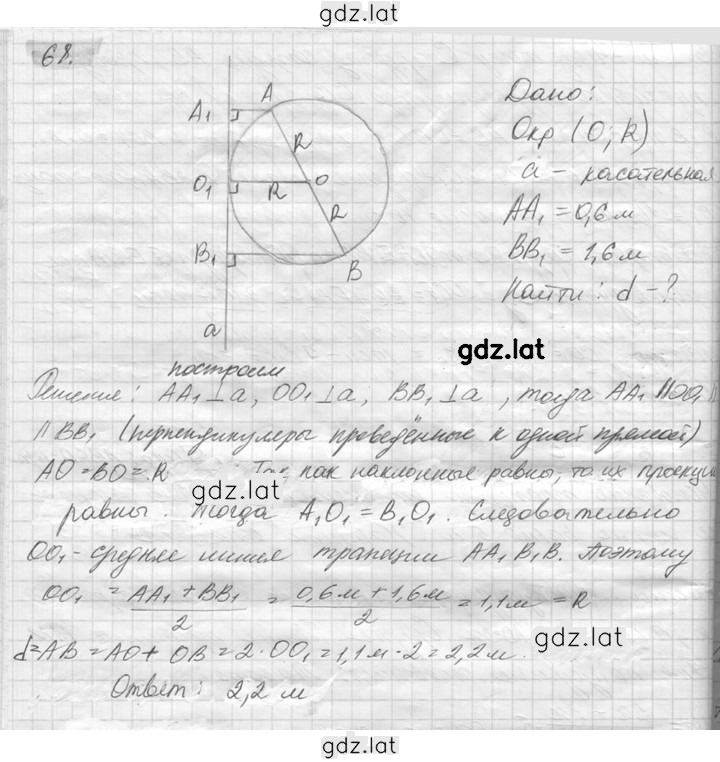 gdz.lat
68.
A
A₁
R
O₁
R
O
R
B₁
B
a
Дано:
Окр (O; R)
a - касательная
AA₁ = 0,6 м
BB₁ = 1,6 м
Найти: d - ?
gdz.lat
построим
Решение: AA₁ ⊥ a, OO₁ ⊥ a, BB₁ ⊥ a, тогда AA₁ || OO₁ ||
|| BB₁ (перпендикуляры проведённые к одной прямой)
AO = BO = R как наклонные равны, то их проекции
gdz.lat
равны. Тогда A₁O₁ = B₁O₁. Следовательно
OO₁ - средняя линия трапеции AA₁B₁B. Поэтому
OO₁ = (AA₁ + BB₁)/2 = (0,6 м + 1,6 м)/2 = 1,1 м = R
gdz.lat
d = AB = AO + OB = 2 · OO₁ = 1,1 м · 2 = 2,2 м.
Ответ: 2,2 м
gdz.lat